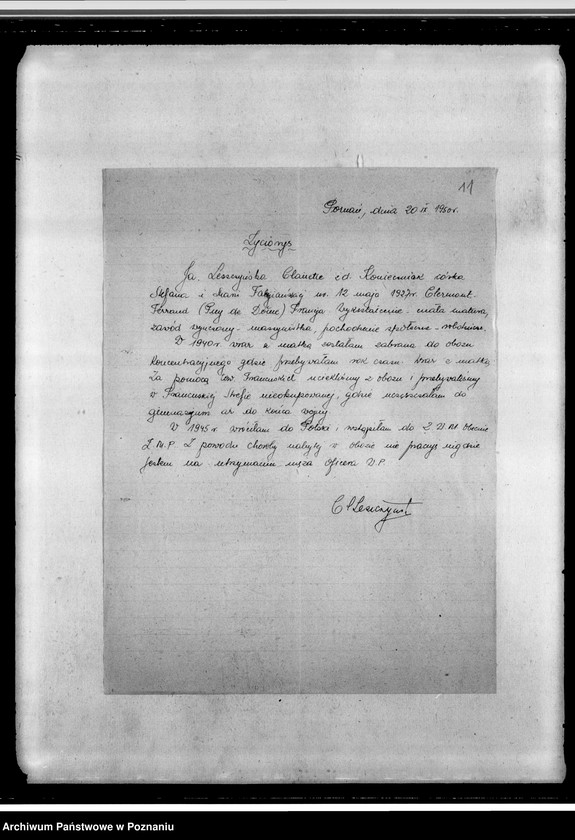 11
Poznań, dnia 20 IX 1950r.
Życiorys
Ja Leszczyńska Claudie z d. Konieczniak córka
Stefana i Marii Fabijańskiej ur. 12 maja 1927r. Clermont-
Ferrand (Puy de Dôme) Francja Wykształcenie - mała matura,
zawód wyuczony - maszynistka, pochodzenie społeczne - robotnicze.
W 1940r. wraz z matką zostałam zabrana do obozu
koncentracyjnego gdzie przebywałam rok czasu wraz z matką.
Za pomocą tow. Francuskich uciekliśmy z obozu i przebywaliśmy
w Francuskiej Strefie nieokupowanej, gdzie uczęszczałam do
gimnazjum aż do końca wojny
W 1945r. wróciłam do Polski i wstąpiłam do Z.W.M. obecnie
Z.M.P. Z powodu choroby nabytej w obozie nie pracuję nigdzie
jestem na utrzymaniu męża Oficera W.P.
Cl Leszczyńska
Archiwum Państwowe w Poznaniu